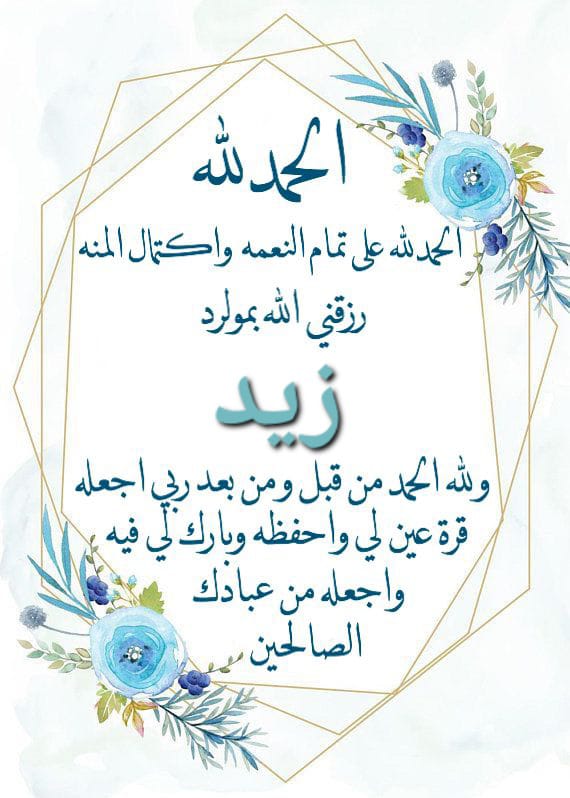 الحمدلله
الحمدلله على تمام النعمه واكتمال المنه
رزقني الله بمولرد
زيد
ولله الحمد من قبل ومن بعد ربي اجعله
قرة عين لي واحفظه وبارك لي فيه
واجعله من عبادك
الصالحين